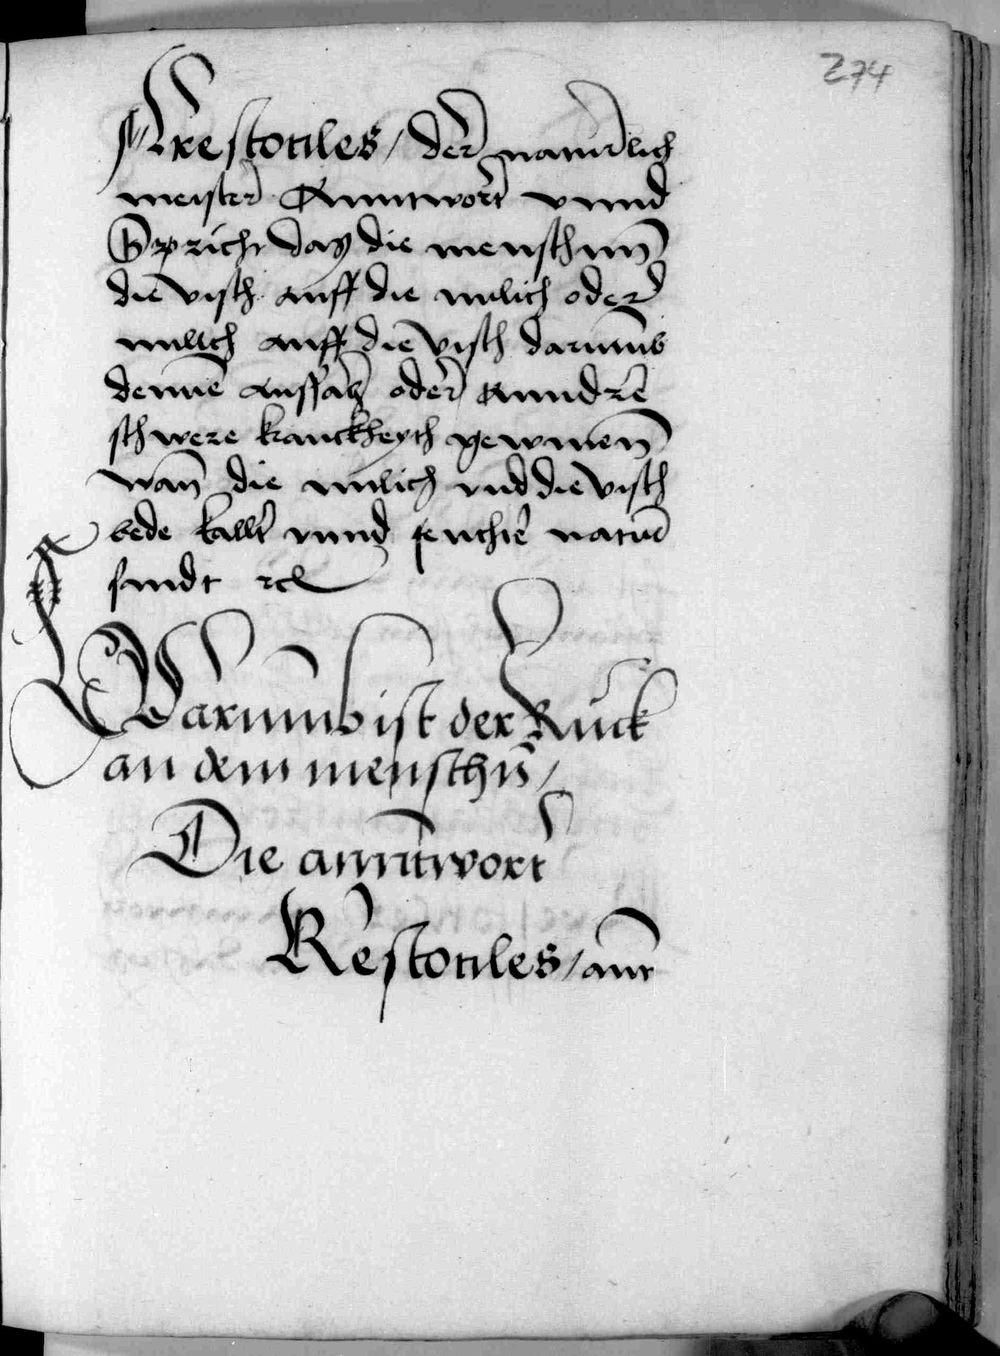 274
Arestotiles / der naturlich
meister Anntwort vnnd
Spricht das die menschnn
die visch auff die milich oder
milich auff die visch darumb
denne aussatz oder anndre
schwere kranckheyth gewinenn
wan die milich vnd die visch
bede kallt vnnd feuchte natur
sindt rc
Warumb ist der Ruck
an dem menschn /
Die anntwort
Restotiles / ant